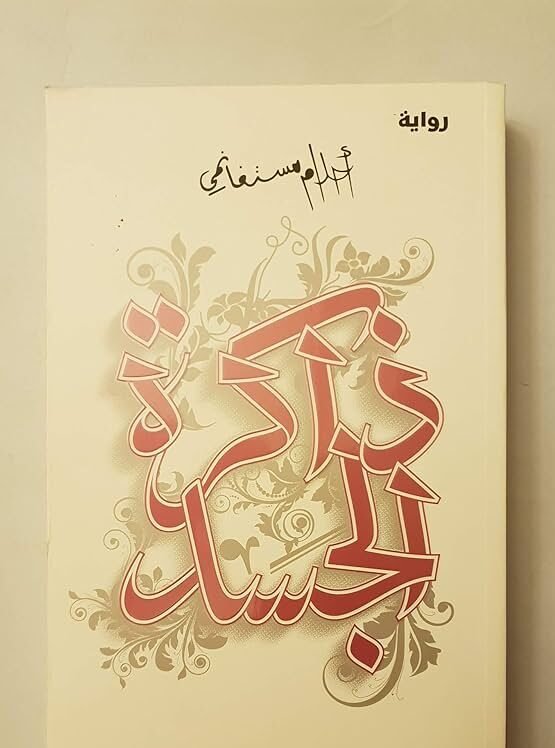 رواية
أحلام مستغانمي
ذاكرة
الجسد